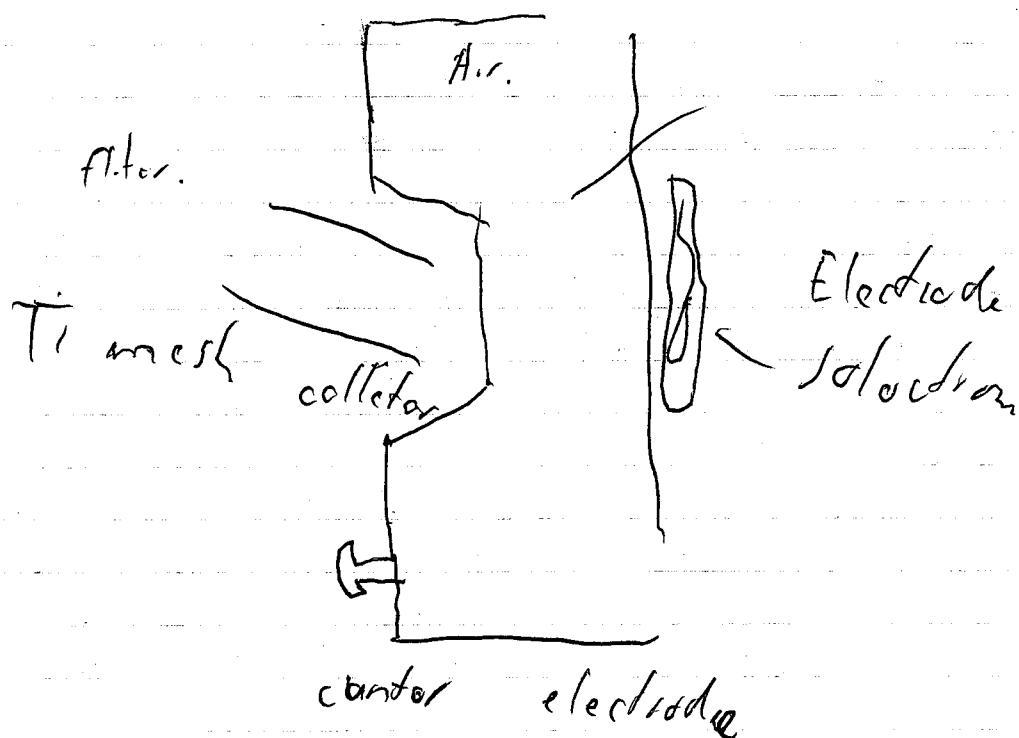 Air.
filtor.
Ti mesh
colletor
Electrode
solectron
cantor electrode